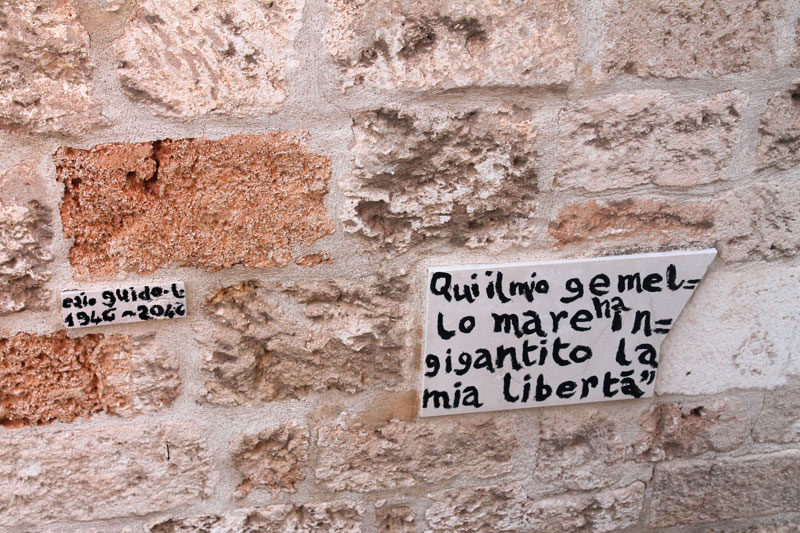 ezio guido.l
1946~2046
Qui il mio gemel=
lo mare ha in=
gigantito la
mia libertà"